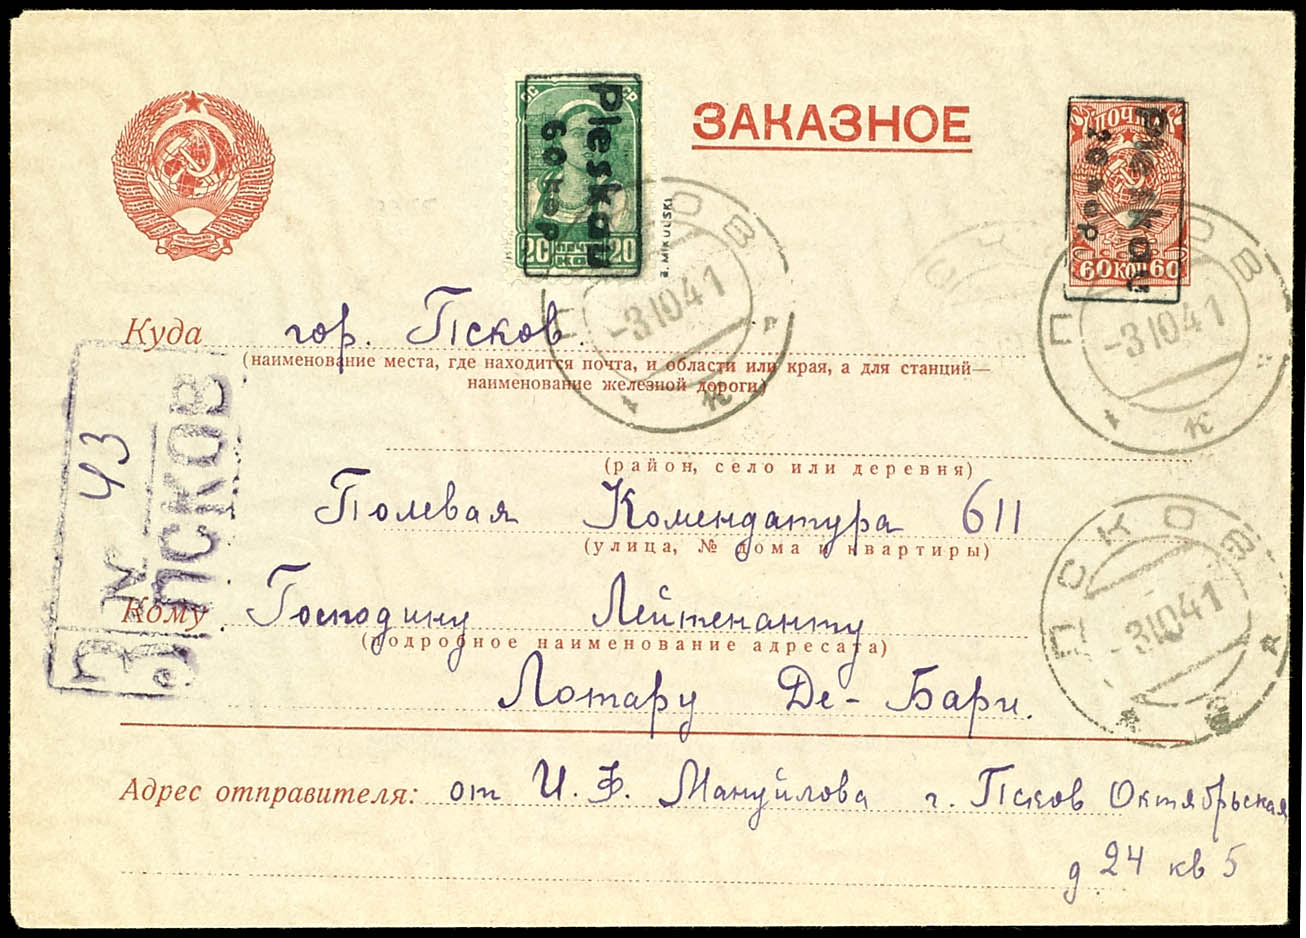 ЗАКАЗНОЕ
СС СР
Pleskau
60 коп
20 ПОЧТА 20
КОП
B. MIKULSKI
ПОЧТА
Pleskau
60 КОП 60
ПСКОВ
-3.10.41
к
ПСКОВ
-3.10.41
к
Куда гор. Псков.
(наименование места, где находится почта, и области или края, а для станций—
наименование железной дороги)
З ПСКОВ
№ 43
(район, село или деревня)
Полевая Комендатура 611
(улица, № дома и квартиры)
Кому Господину Лейтенанту
(подробное наименование адресата)
Лотару Де-Бари.
ПСКОВ
-3.10.41
Адрес отправителя: от И. Ф. Мануйлова г. Псков Октябрьская
д 24 кв 5